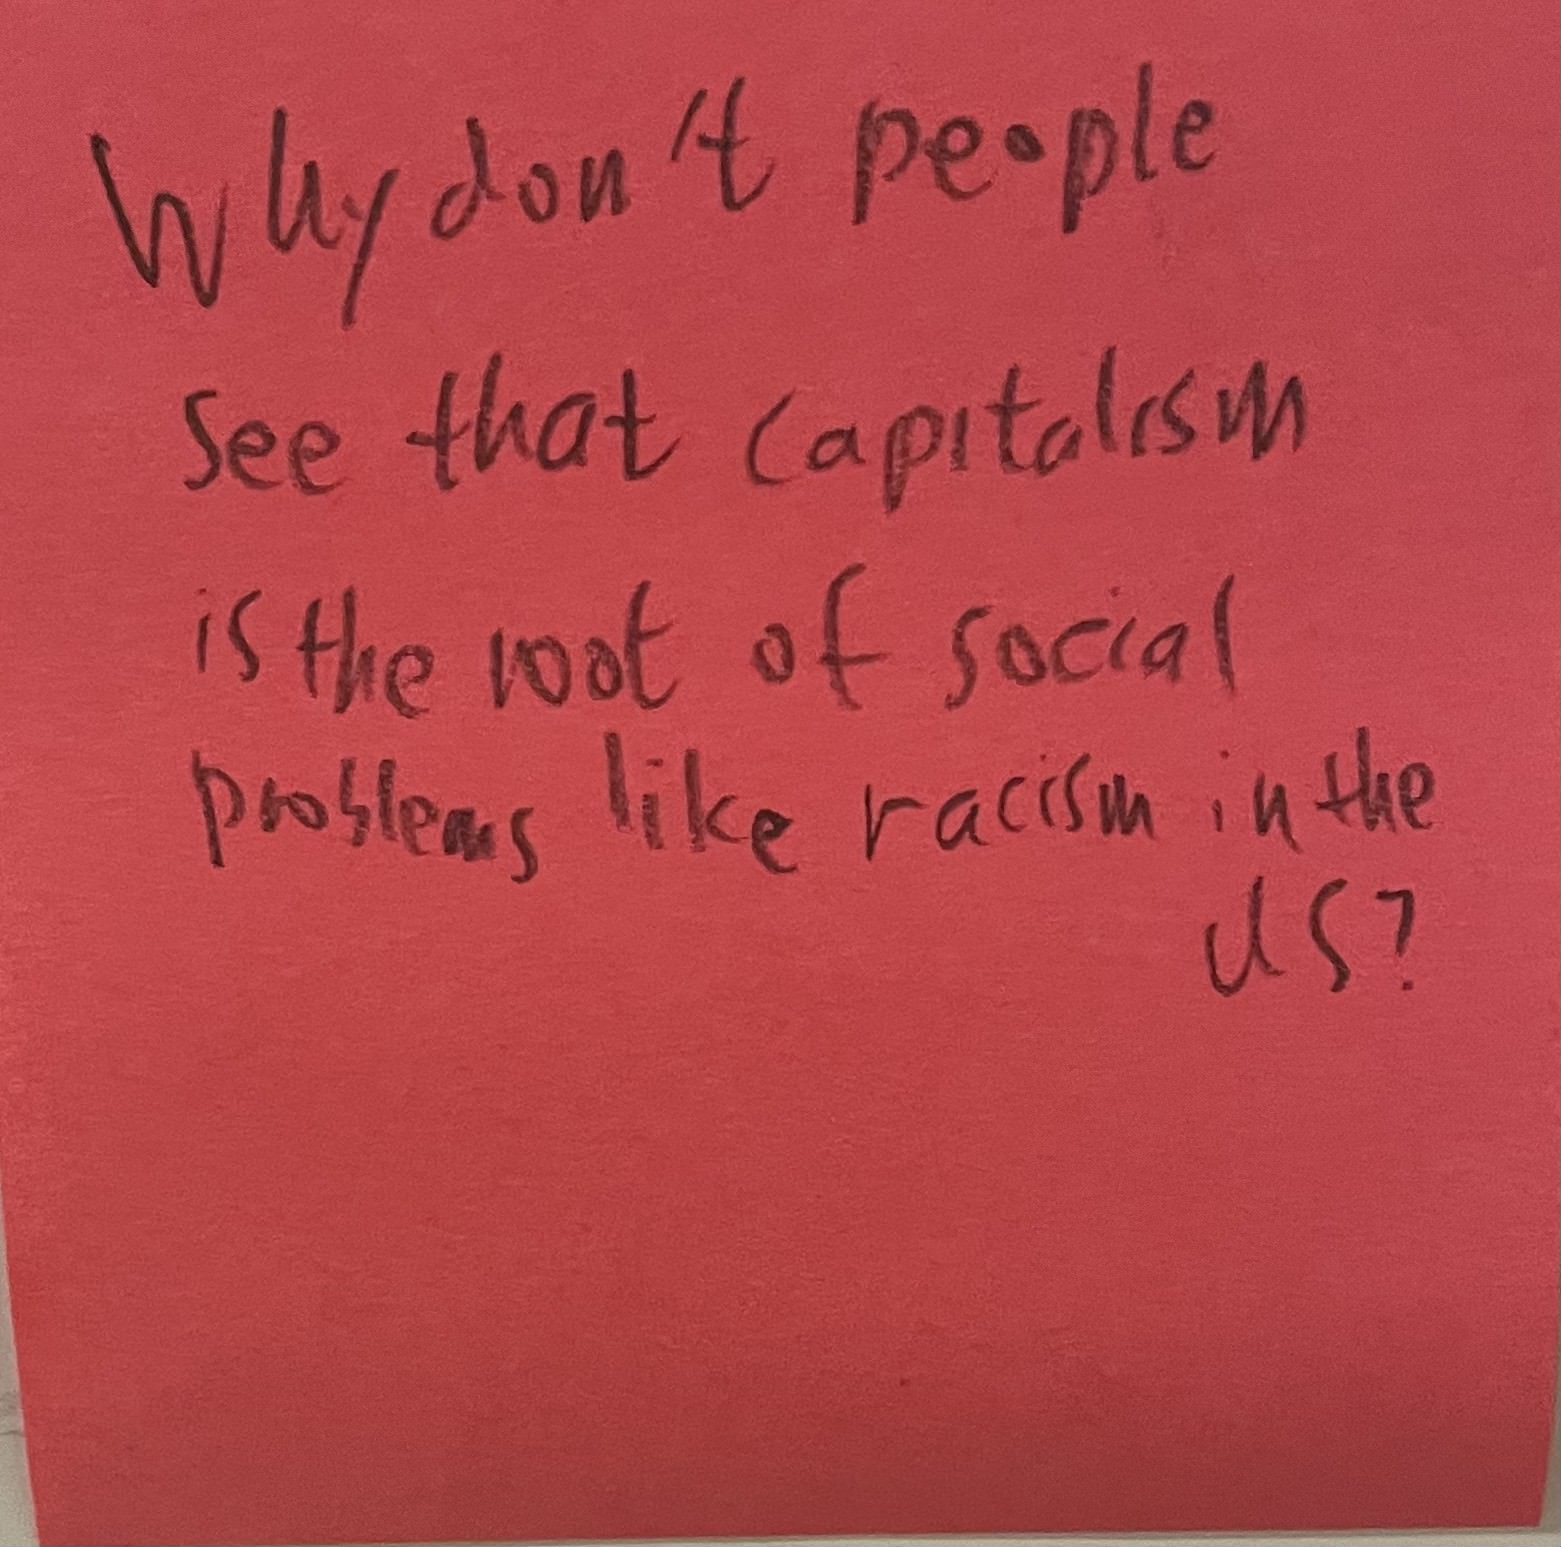 Why don't people
see that capitalism
is the root of social
problems like racism in the
US?